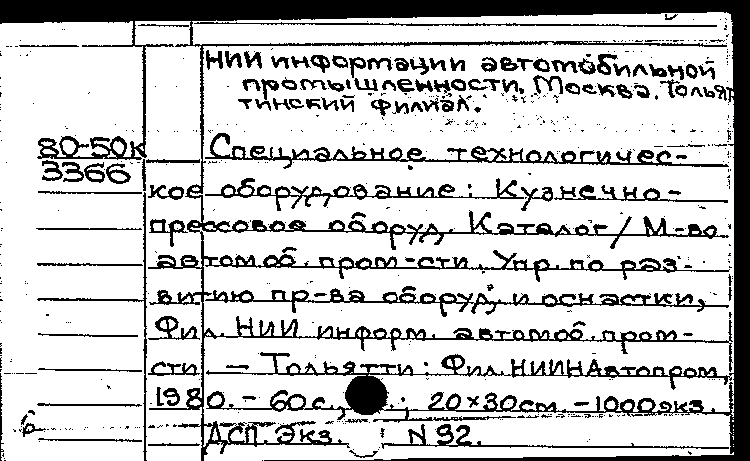 НИИ информации автомобильной
промышленности. Москва. Тольят
тинский филиал.
80-50к
3366
Специальное технологичес-
кое оборудование: Кузнечно-
прессовое оборуд. Каталог / М-во
автомоб. пром-сти, Упр. по раз-
витию пр-ва оборуд. и оснастки,
Фил. НИИ информ. автомоб. пром-
сти. — Тольятти: Фил. НИИНАвтопром,
1980. - 60 с., ; 20×30 см. - 1000 экз.
ДСП. Экз. N 92.
6